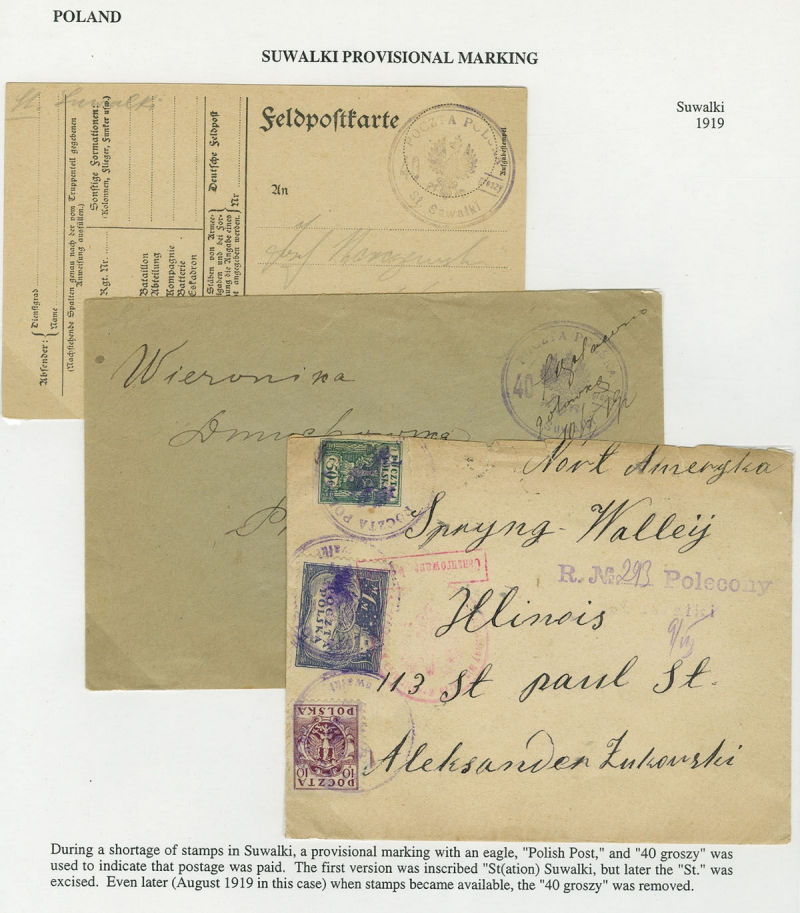 POLAND
SUWALKI PROVISIONAL MARKING
Suwalki
1919
St. Suwalki
Feldpostkarte
An
Absender:
Dienstgrad
Name
(Nachstehende Spalten genau nach der vom Truppenteil gegebenen
Anweisung ausfüllen.)
Sonstige Formationen:
(Kolonnen, Flieger, Funker usw.)
Rgt. Nr.
Bataillon
Abteilung
Kompagnie
Batterie
Eskadron
Deutsche Feldpost
Nr
POCZTA POLS
St Suwalki
POCZTA POLSKA
40
Wieronika
Nort Ameryka
Spryng-Walleij
Illinois
113 St paul St.
Aleksander Żukowski
R. № 293 Polecony
Cenzurowane
60
POCZTA
POLSKA
POCZTA PO
1 M
POCZTA
POLSKA
POLSKA
10 10
POCZTA
During a shortage of stamps in Suwalki, a provisional marking with an eagle, "Polish Post," and "40 groszy" was
used to indicate that postage was paid. The first version was inscribed "St(ation) Suwalki, but later the "St." was
excised. Even later (August 1919 in this case) when stamps became available, the "40 groszy" was removed.